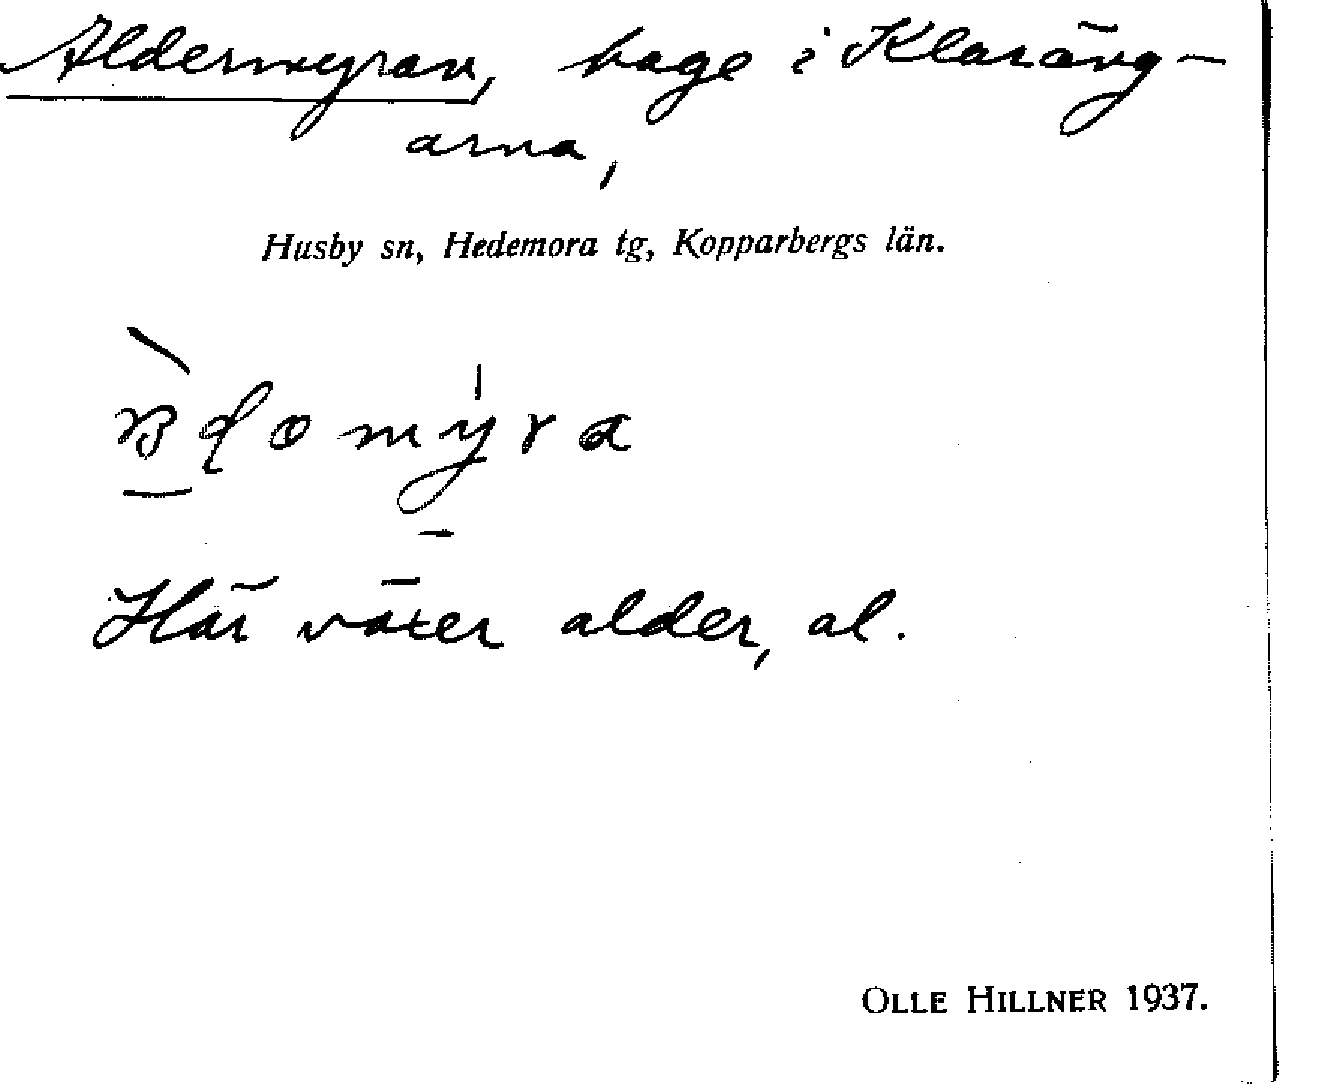 Aldermyran, hage i Klaräng-
arna,
Husby sn, Hedemora tg, Kopparbergs län.
Här växer alder, al.
OLLE HILLNER 1937.